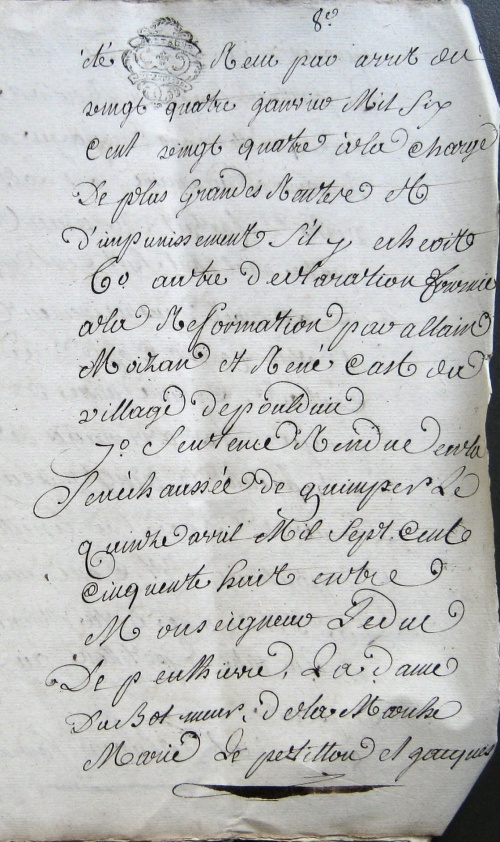 8e
été Receu par arrit du
vingt quatre janvier Mil Six
Cent vingt quatre à la charge
De plus Grandes Rentes Et
d'impunissement S'il y echeoit
6o autre declaration fournie
a la Refformation par allain
Moizan et René Cast du
village de pouldu
7o Sentence Rendue en la
Senéchaussée de quimper Le
quinze avril Mil Sept Cent
Cinquente huit entre
Monseigneur Le duc
De penthievre, La dame
Du Bot meur, de la Marche
Marie Le petillon et jacques